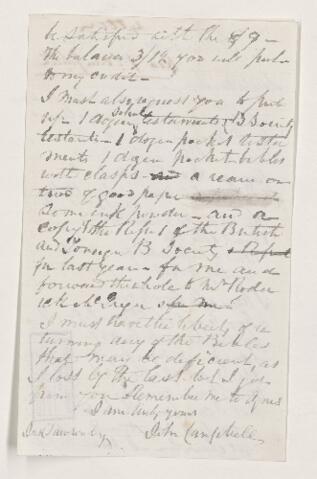 be satisfied with the
The balance 3/1 you will put
to my credit –
I must also request you to put
up – 1 dozen school testaments (B Society
testants – 1 dozen pocket testa
ments 1 dozen pocket bibles
with clasps – a ream or
two of good paper
some ink powder – and a
copy of the Report of the British
and Foreign B Society
for last year – for me and
forward the whole to Mr Roder
ick McGregor
I must have the liberty of re
turning any of the Bibles
that may be deficient, as
I lost by the last lot I got
from you Remember me to yours
I am truly yours
John Campbell